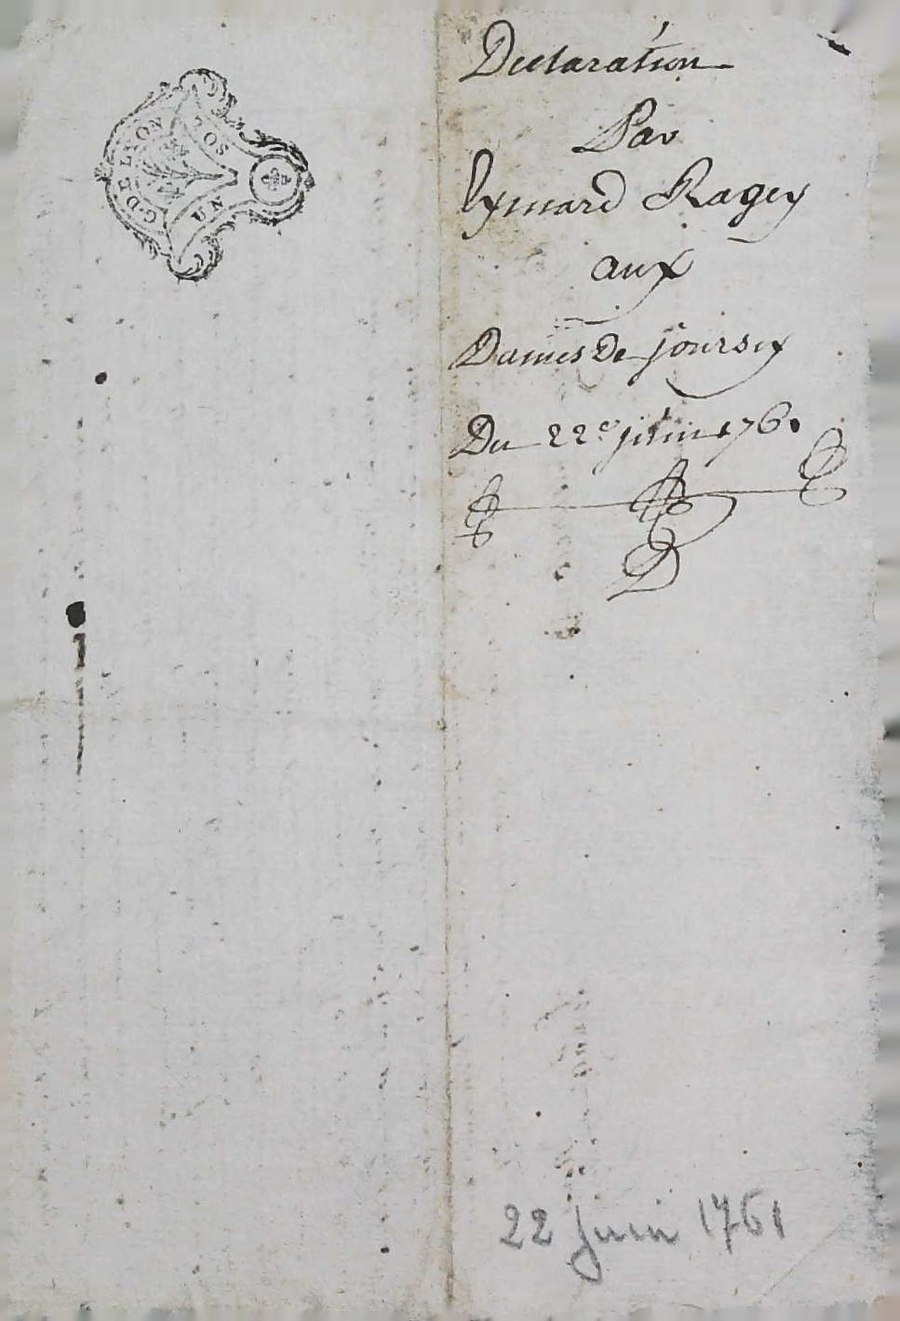 G. DE LYON
UN SOL
Declaration
Par
Eymard Ragey
aux
Dames de joursey
Du 22e juin 1761
22 juin 1761